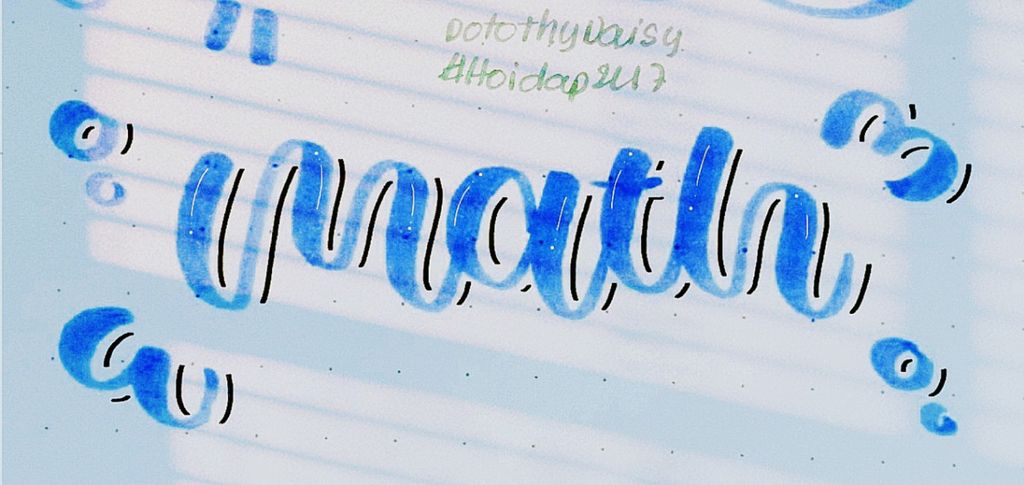 DotothyDaisy
#Hoidap247
math